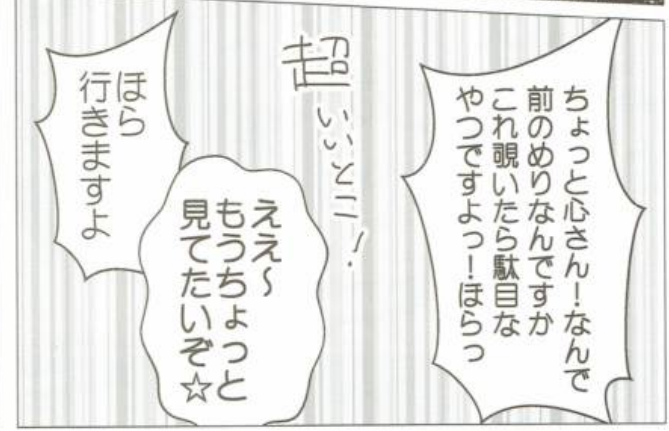 ちょっと心さん！なんで
前のめりなんですか
これ覗いたら駄目な
やつですよっ！ほらっ
超いいとこ！
ええ～
もうちょっと
見てたいぞ☆
ほら
行きますよ